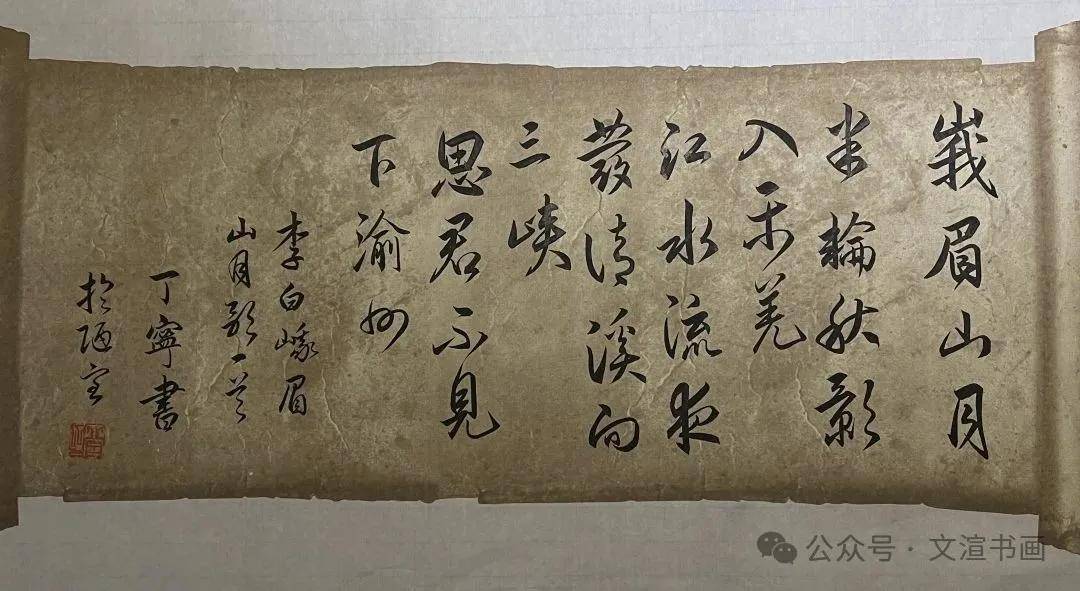 峩眉山月
半輪秋影
入平羌
江水流夜
發清溪向
三峽
思君不見
下渝州
李白峨眉
山月歌一首
丁寧書
於陋室
公众号 · 文渲书画